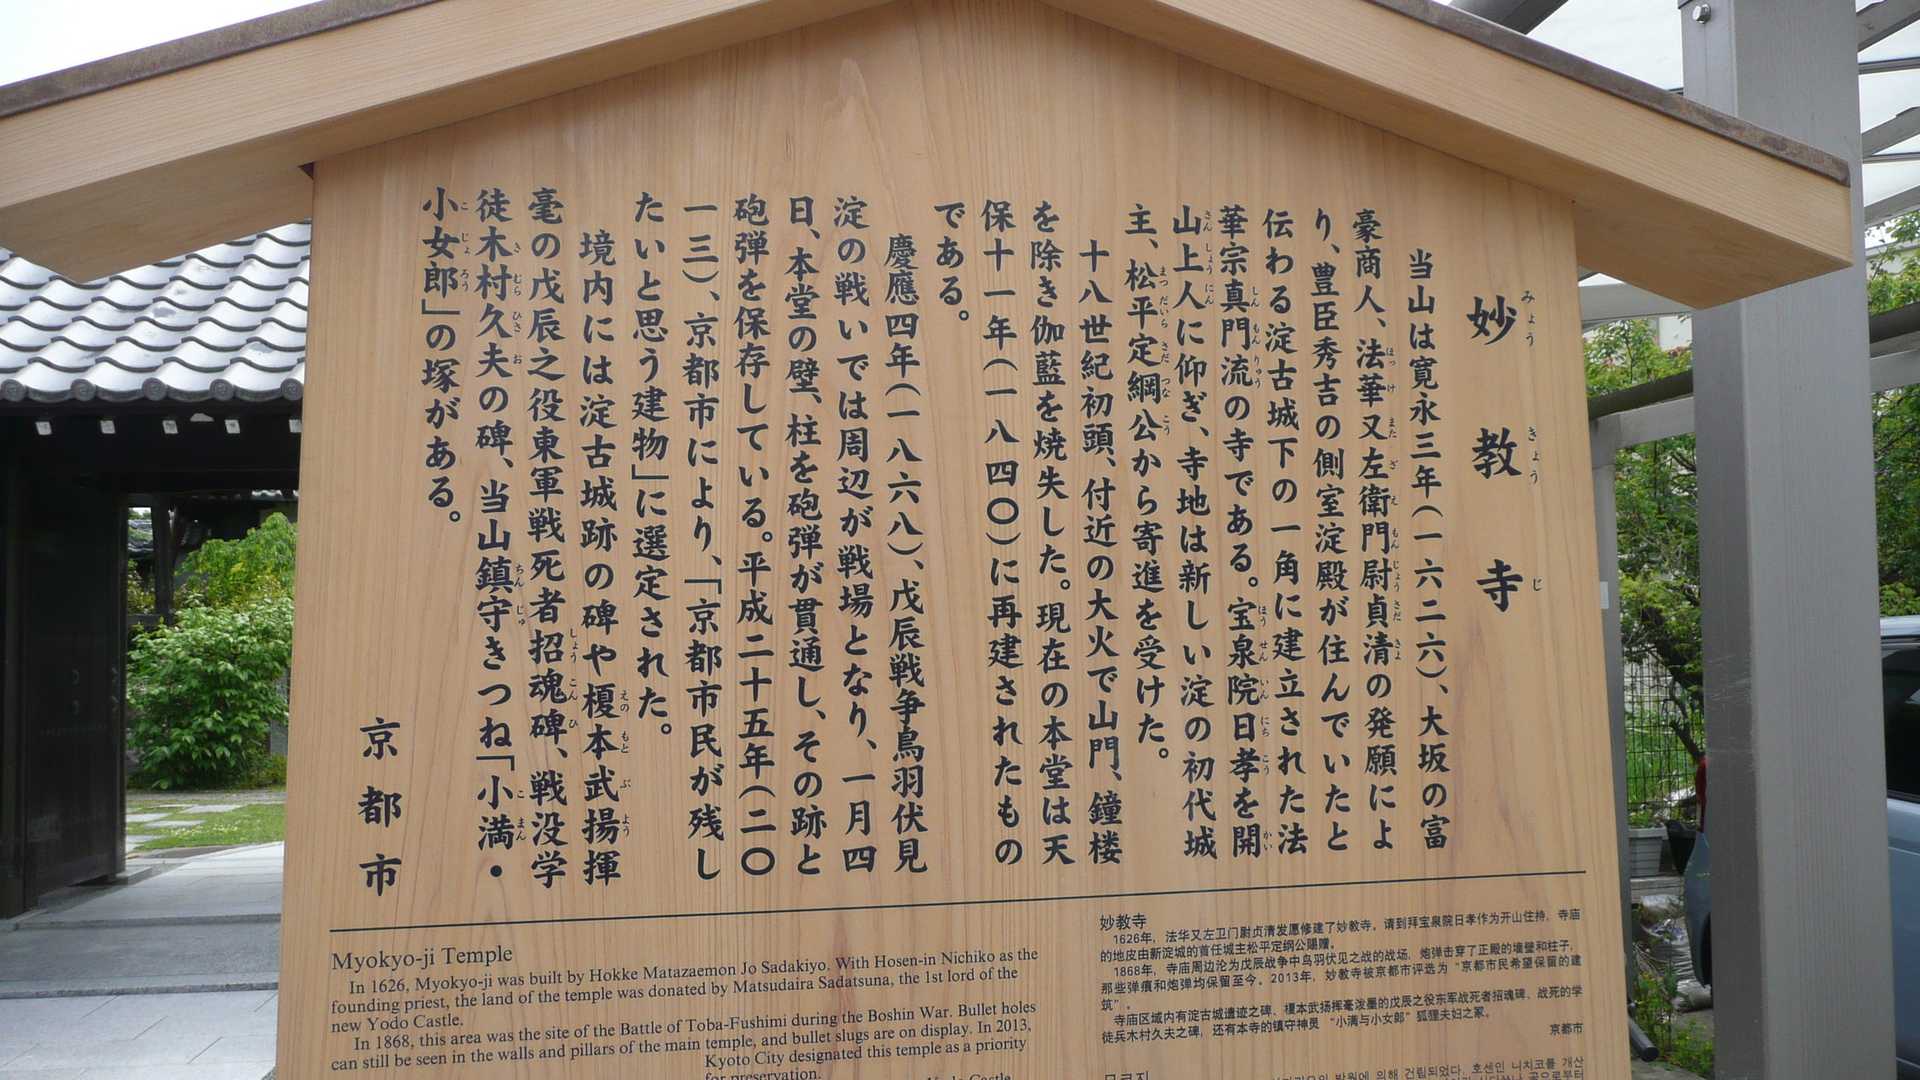 妙教寺
みょうきょうじ
当山は寛永三年（一六二六）、大坂の富
豪商人、法華又左衛門尉貞清の発願によ
ほっけまたざえもんじょうさだきよ
り、豊臣秀吉の側室淀殿が住んでいたと
伝わる淀古城下の一角に建立された法
華宗真門流の寺である。宝泉院日孝を開
しんもんりゅう
ほうせんいんにちこう
かい
山上人に仰ぎ、寺地は新しい淀の初代城
さんしょうにん
主、松平定綱公から寄進を受けた。
まつだいらさだつなこう
十八世紀初頭、付近の大火で山門、鐘楼
を除き伽藍を焼失した。現在の本堂は天
保十一年（一八四〇）に再建されたもの
である。
慶應四年（一八六八）、戊辰戦争鳥羽伏見
淀の戦いでは周辺が戦場となり、一月四
日、本堂の壁、柱を砲弾が貫通し、その跡と
砲弾を保存している。平成二十五年（二〇
一三）、京都市により、「京都市民が残し
たいと思う建物」に選定された。
境内には淀古城跡の碑や榎本武揚揮
えのもと
ぶよう
毫の戊辰之役東軍戦死者招魂碑、戦没学
しょうこんひ
徒木村久夫の碑、当山鎮守きつね「小満・
きむらひさお
ちんじゅ
こまん
小女郎」の塚がある。
こじょろう
京都市
Myokyo-ji Temple
In 1626, Myokyo-ji was built by Hokke Matazaemon Jo Sadakiyo. With Hosen-in Nichiko as the
founding priest, the land of the temple was donated by Matsudaira Sadatsuna, the 1st lord of the
new Yodo Castle.
In 1868, this area was the site of the Battle of Toba-Fushimi during the Boshin War. Bullet holes
can still be seen in the walls and pillars of the main temple, and bullet slugs are on display. In 2013,
Kyoto City designated this temple as a priority
for preservation.
妙教寺
1626年，法华又左卫门尉贞清发愿修建了妙教寺，请到拜宝泉院日孝作为开山住持，寺庙
的地皮由新淀城的首任城主松平定纲公赐赠。
1868年，寺庙周边沦为戊辰战争中鸟羽伏见之战的战场，炮弹击穿了正殿的墙壁和柱子，
那些弹痕和炮弹均保留至今。2013年，妙教寺被京都市评选为“京都市民希望保留的建
筑”。
寺庙区域内有淀古城遗迹之碑、榎本武扬挥毫泼墨的戊辰之役东军战死者招魂碑、战死的学
徒兵木村久夫之碑，还有本寺的镇守神灵“小满与小女郎”狐狸夫妇之冢。
京都市